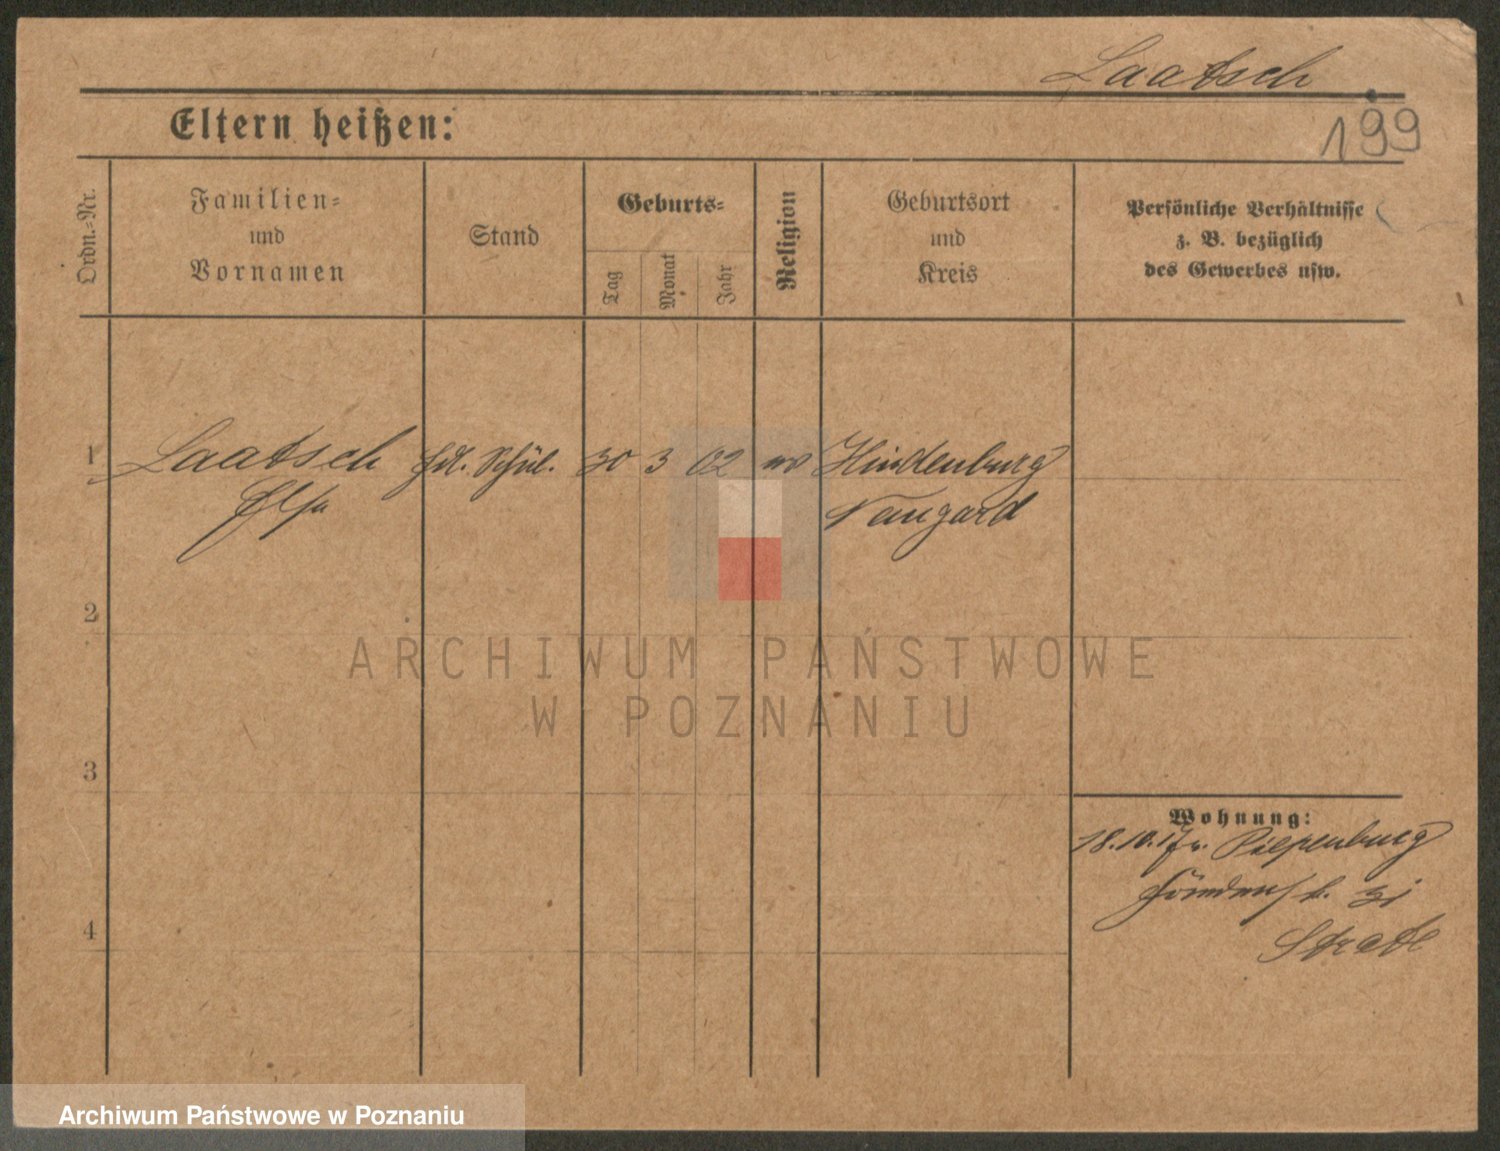 Laatsch
199
Eltern heißen:
Ordn.-Nr.
Familien-
und
Vornamen
Stand
Geburts-
Tag
Monat
Jahr
Religion
Geburtsort
und
Kreis
Persönliche Verhältnisse
z. B. bezüglich
des Gewerbes usw.
1 Laatsch 30 3 02 ev Hindenburg
Elsa Naugard
2
ARCHIWUM PAŃSTWOWE
W POZNANIU
3
Wohnung:
18.10.17 v. Piepenburg
31
4
Archiwum Państwowe w Poznaniu